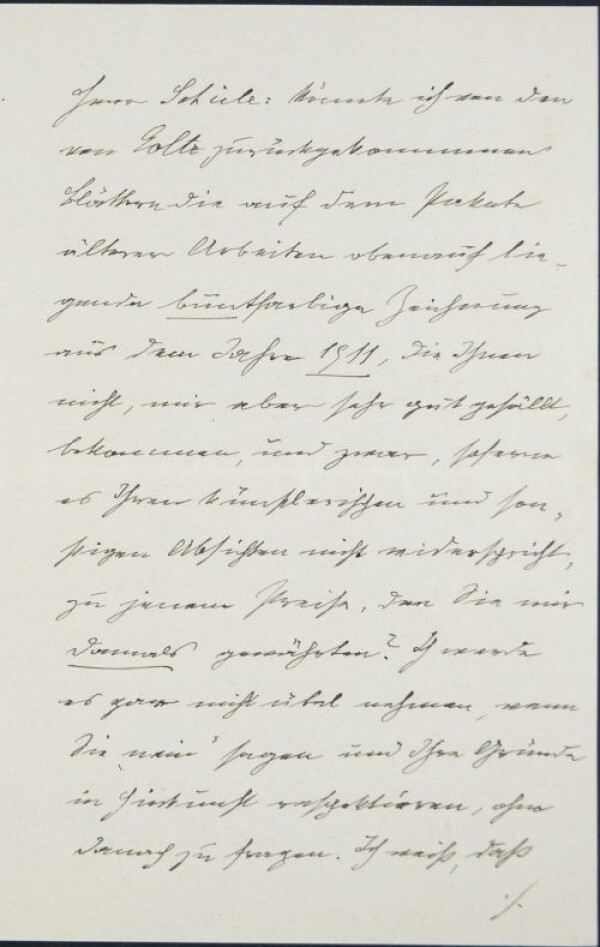 Herr Schiele: Könnte ich von den
von Goltz zurückgekommenen
Blättern die auf dem Pakete
älterer Arbeiten obenauf lie-
gende buntfarbige Zeichnung
aus dem Jahre 1911, die Ihnen
nicht, mir aber sehr gut gefällt,
bekommen, und zwar, soferne
es Ihren künstlerischen und son-
stigen Absichten nicht widerspricht,
zu jenem Preise, den Sie mir
damals gewährten? Ich werde
es gar nicht übel nehmen, wenn
Sie „nein" sagen und Ihre Gründe
in Hinkunft respektieren, ohne
danach zu fragen. Ich weiß, daß
./.